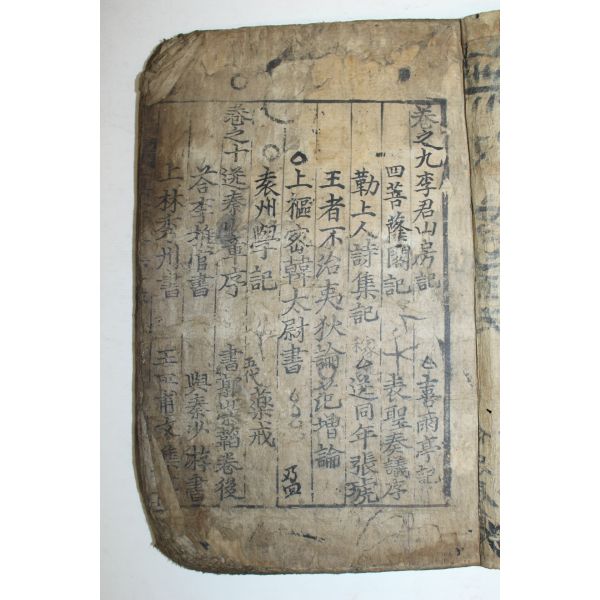 卷之九 李君山房記 喜雨亭記
四菩薩閣記 表聖奏議序
勤上人詩集記 稼 送同年張琥
王者不治夷狄論 范增論
上樞密韓太尉書
袁州學記 藥戒
卷之十 送秦少章序 書鄭紫䩞卷後
答李推官書 與秦少游書
上林秀州書 王平甫文集